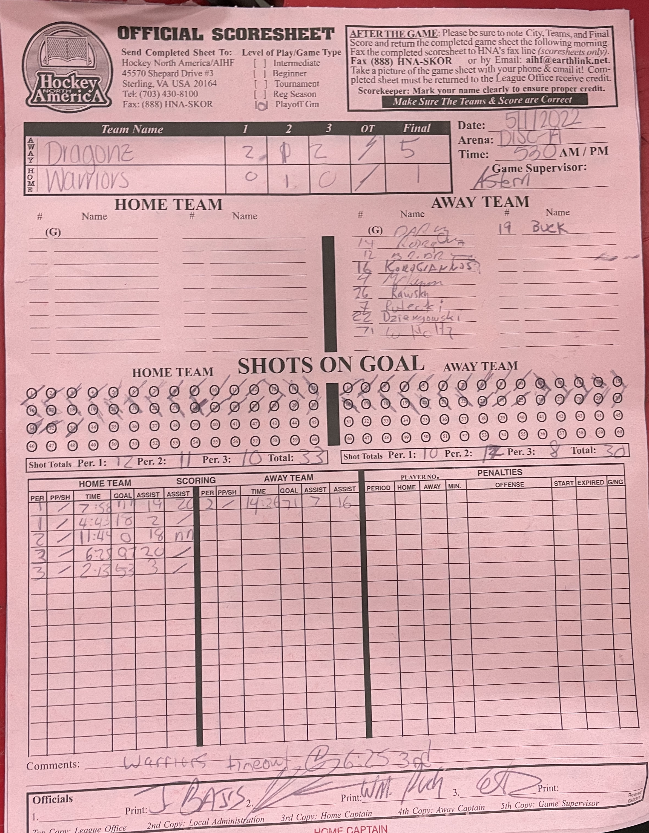 Hockey
NORTH
AmericA
OFFICIAL SCORESHEET
Send Completed Sheet To:
Hockey North America/AIHF
45570 Shepard Drive #3
Sterling, VA USA 20164
Tel: (703) 430-8100
Fax: (888) HNA-SKOR
Level of Play/Game Type
[ ] Intermediate
[ ] Beginner
[ ] Tournament
[ ] Reg Season
Playoff Gm
AFTER THE GAME: Please be sure to note City, Teams, and Final
Score and return the completed game sheet the following morning.
Fax the completed scoresheet to HNA's fax line (scoresheets only).
Fax (888) HNA-SKOR or by Email: aihf@earthlink.net.
Take a picture of the game sheet with your phone & email it! Com-
pleted sheet must be returned to the League Office receive credit.
Scorekeeper: Mark your name clearly to ensure proper credit.
Make Sure The Teams & Score are Correct
Team Name 1 2 3 OT Final
AWAY Dragonz 2 1 2 / 5
HOME Warriors 0 1 0 / 1
Date: 5/1/2022
Arena:
Time: 530 AM / PM
Game Supervisor:
HOME TEAM
# Name # Name
(G)
AWAY TEAM
# Name # Name
(G) 19 BUCK
12
16
26 Rawski
7
22 Dziergowski
71
HOME TEAM SHOTS ON GOAL AWAY TEAM
Shot Totals Per. 1: 12 Per. 2: 11 Per. 3: 10 Total: 33
Shot Totals Per. 1: 10 Per. 2: 12 Per. 3: 8 Total: 30
HOME TEAM SCORING AWAY TEAM
PER PP/SH TIME GOAL ASSIST ASSIST PER PP/SH TIME GOAL ASSIST ASSIST
PLAYER NO. PENALTIES
PERIOD HOME AWAY MIN. OFFENSE START EXPIRED GING
1 / 7:58 77 19 20 2 / 14:26 71 7 16
1 / 4:43 18 2 /
2 / 11:49 0 18
3 / 6:25 97 20 /
3 / 2:13 53 3 /
Comments: Warriors timeout @ 6:25 3rd
Officials
1. Print: J BASS 2. Print: 3. Print:
Top Copy: League Office 2nd Copy: Local Administration 3rd Copy: Home Captain 4th Copy: Away Captain 5th Copy: Game Supervisor
HOME CAPTAIN